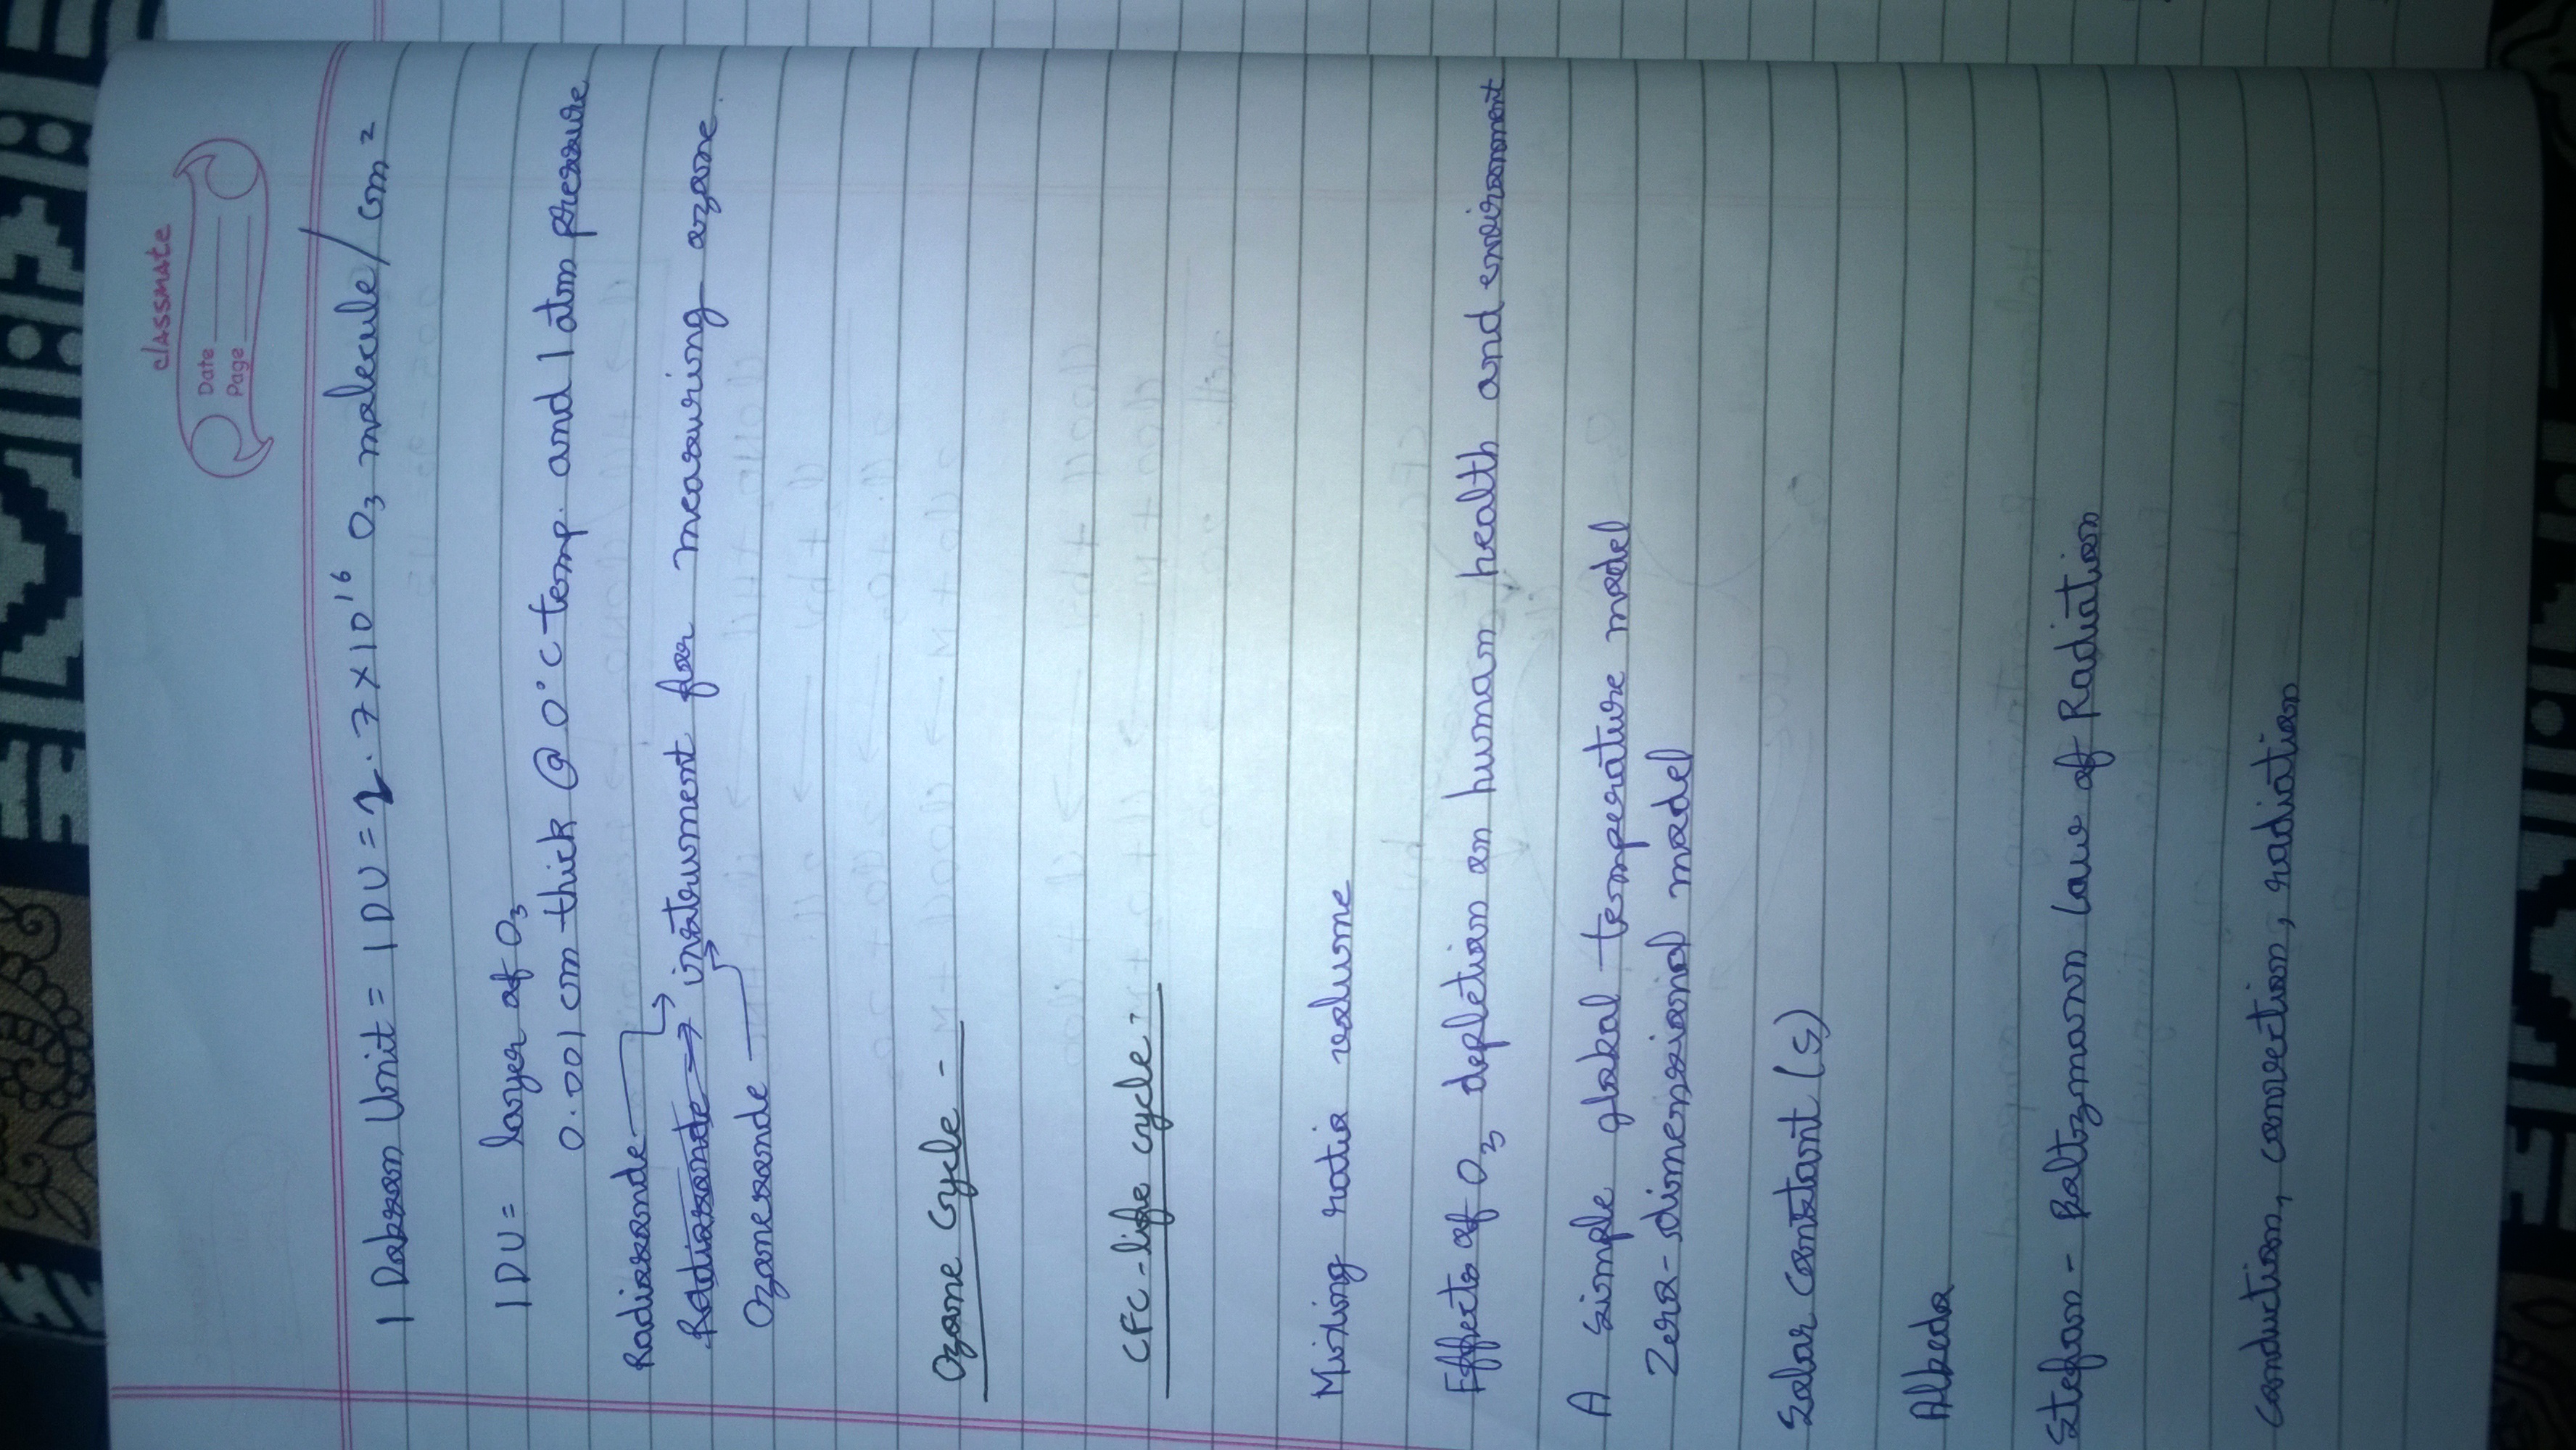 classmate
Date
Page
1 Dobson Unit = 1 DU = 2.7 × 10¹⁶ O₃ molecule/cm²
1 DU = layer of O₃
0.001 cm thick @ 0°C temp. and 1 atm pressure
Radiosonde
Radiosonde → instrument for measuring ozone.
Ozonesonde
Ozone Cycle -
CFC - life cycle -
Mixing ratio volume
Effects of O₃ depletion on human health and environment
A simple global temperature model
Zero-dimensional model
Solar Constant (S)
Albedo
Stefan - Boltzmann law of Radiation
Conduction, convection, radiation